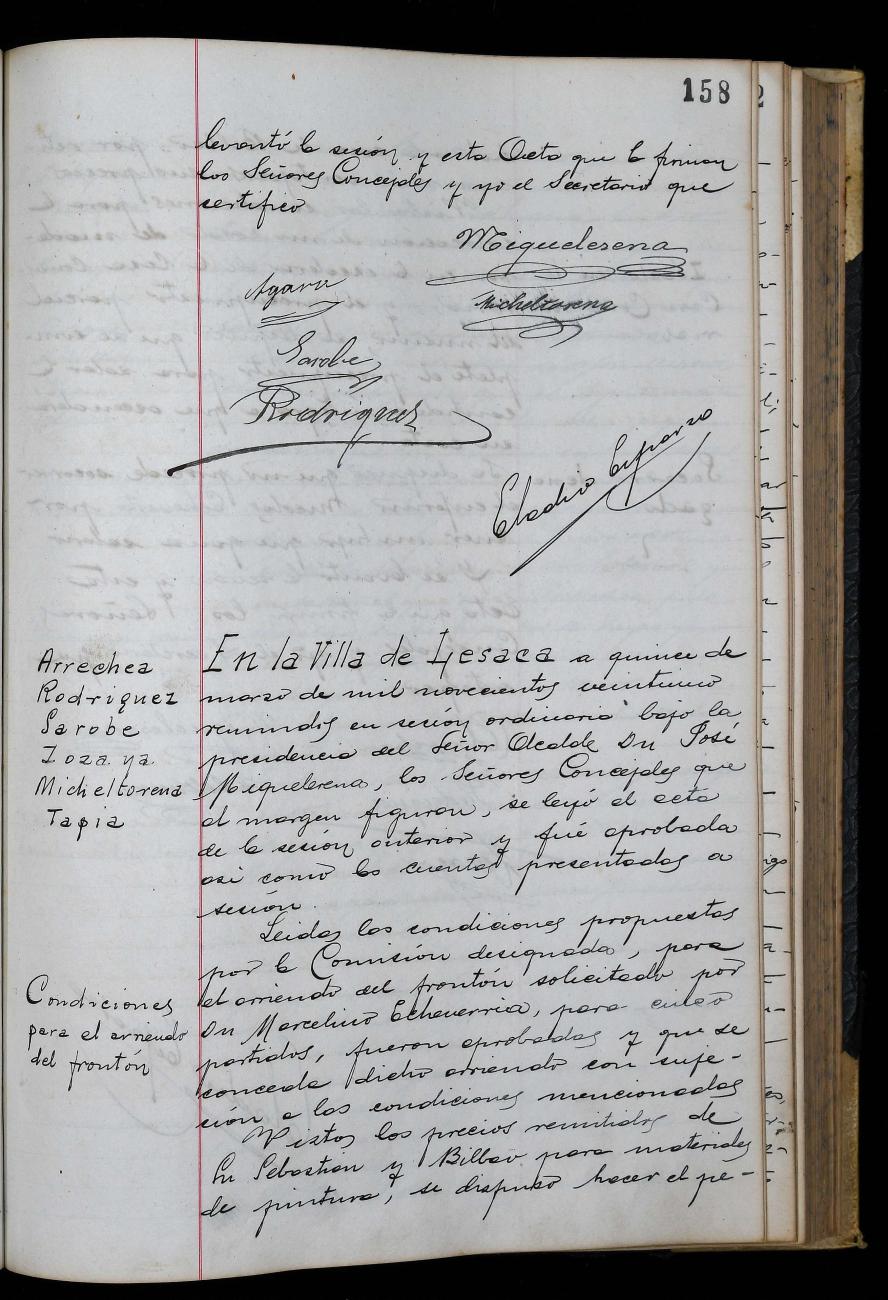 158
levantó la sesión y esta Acta que la firman
los Señores Concejales y yo el Secretario que
certifico
Miquelerena
Agara
Micheltorena
Sarobe
Rodriguez
Eladio Esparza
Arrechea
Rodriguez
Sarobe
Zozaya
Micheltorena
Tapia
En la Villa de Lesaca a quince de
marzo de mil novecientos veintiuno
reunidos en sesión ordinaria bajo la
presidencia del Señor Alcalde Dn José
Miquelerena, los Señores Concejales que
al margen figuran, se leyó el acta
de la sesión anterior y fué aprobada
asi como las cuentas presentadas a
sesión.
Leidas las condiciones propuestas
por la Comisión designada, para
el arriendo del frontón solicitado por
Dn Marcelino Echeverria, para cinco
partidos, fueron aprobadas y que se
conceda dicho arriendo con suje-
ción a las condiciones mencionadas
Condiciones
para el arriendo
del frontón
Vistos los precios remitidos de
Sn Sebastian y Bilbao para materiales
de pintura, se dispuso hacer el pe-